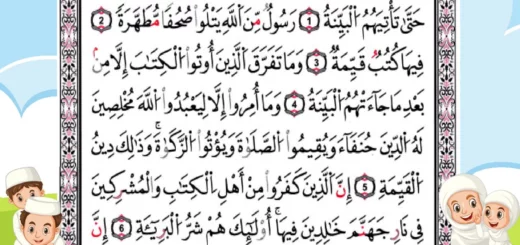 حَتَّىٰ تَأْتِيَهُمُ الْبَيِّنَةُ ١ رَسُولٌ مِّنَ اللَّهِ يَتْلُوا۟ صُحُفًا مُّطَهَّرَةً ٢
فِيهَا كُتُبٌ قَيِّمَةٌ ٣ وَمَا تَفَرَّقَ الَّذِينَ أُوتُوا۟ الْكِتَٰبَ إِلَّا مِنۢ
بَعْدِ مَا جَآءَتْهُمُ الْبَيِّنَةُ ٤ وَمَآ أُمِرُوٓا۟ إِلَّا لِيَعْبُدُوا۟ اللَّهَ مُخْلِصِينَ
لَهُ الدِّينَ حُنَفَآءَ وَيُقِيمُوا۟ الصَّلَوٰةَ وَيُؤْتُوا۟ الزَّكَوٰةَ ۚ وَذَٰلِكَ دِينُ
الْقَيِّمَةِ ٥ إِنَّ الَّذِينَ كَفَرُوا۟ مِنْ أَهْلِ الْكِتَٰبِ وَالْمُشْرِكِينَ
فِى نَارِ جَهَنَّمَ خَٰلِدِينَ فِيهَآ ۚ أُو۟لَٰٓئِكَ هُمْ شَرُّ الْبَرِيَّةِ ٦ إِنَّ